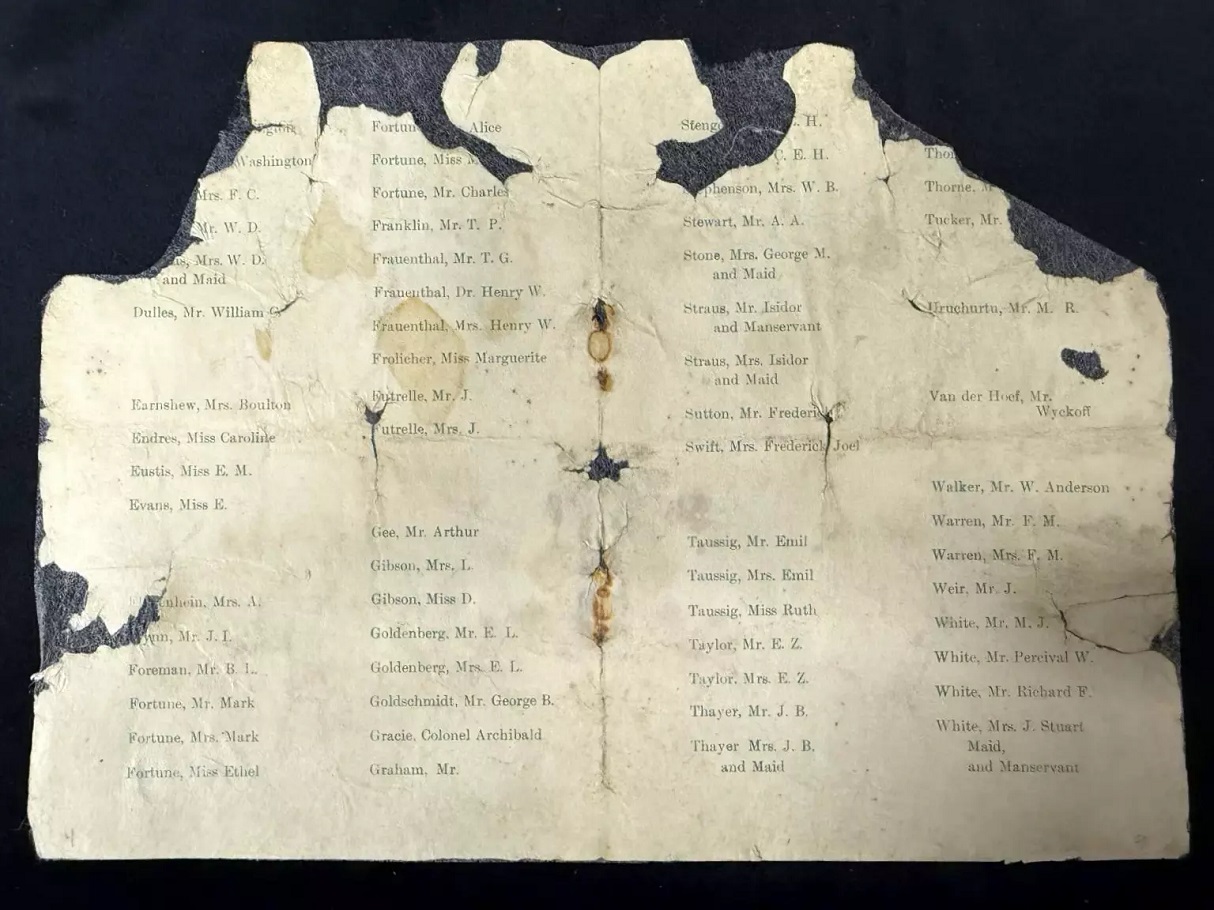 Washington
Mrs. F. C.
Mr. W. D.
Mrs. W. D.
and Maid
Dulles, Mr. William C.
Earnshew, Mrs. Boulton
Endres, Miss Caroline
Eustis, Miss E. M.
Evans, Miss E.
Mrs. A.
Mr. J. I.
Foreman, Mr. B. L.
Fortune, Mr. Mark
Fortune, Mrs. Mark
Fortune, Miss Ethel
Fortun Alice
Fortune, Miss M
Fortune, Mr. Charles
Franklin, Mr. T. P.
Frauenthal, Mr. T. G.
Frauenthal, Dr. Henry W.
Frauenthal, Mrs. Henry W.
Frolicher, Miss Marguerite
Futrelle, Mr. J.
Futrelle, Mrs. J.
Gee, Mr. Arthur
Gibson, Mrs. L.
Gibson, Miss D.
Goldenberg, Mr. E. L.
Goldenberg, Mrs. E. L.
Goldschmidt, Mr. George B.
Gracie, Colonel Archibald
Graham, Mr.
Stenge H.
C. E. H.
phenson, Mrs. W. B.
Stewart, Mr. A. A.
Stone, Mrs. George M.
and Maid
Straus, Mr. Isidor
and Manservant
Straus, Mrs. Isidor
and Maid
Sutton, Mr. Frederick
Swift, Mrs. Frederick Joel
Taussig, Mr. Emil
Taussig, Mrs. Emil
Taussig, Miss Ruth
Taylor, Mr. E. Z.
Taylor, Mrs. E. Z.
Thayer, Mr. J. B.
Thayer Mrs. J. B.
and Maid
Thor
Thorne, M
Tucker, Mr.
Uruchurtu, Mr. M. R.
Van der Hoef, Mr.
Wyckoff
Walker, Mr. W. Anderson
Warren, Mr. F. M.
Warren, Mrs. F. M.
Weir, Mr. J.
White, Mr. M. J.
White, Mr. Percival W.
White, Mr. Richard F.
White, Mrs. J. Stuart
Maid,
and Manservant